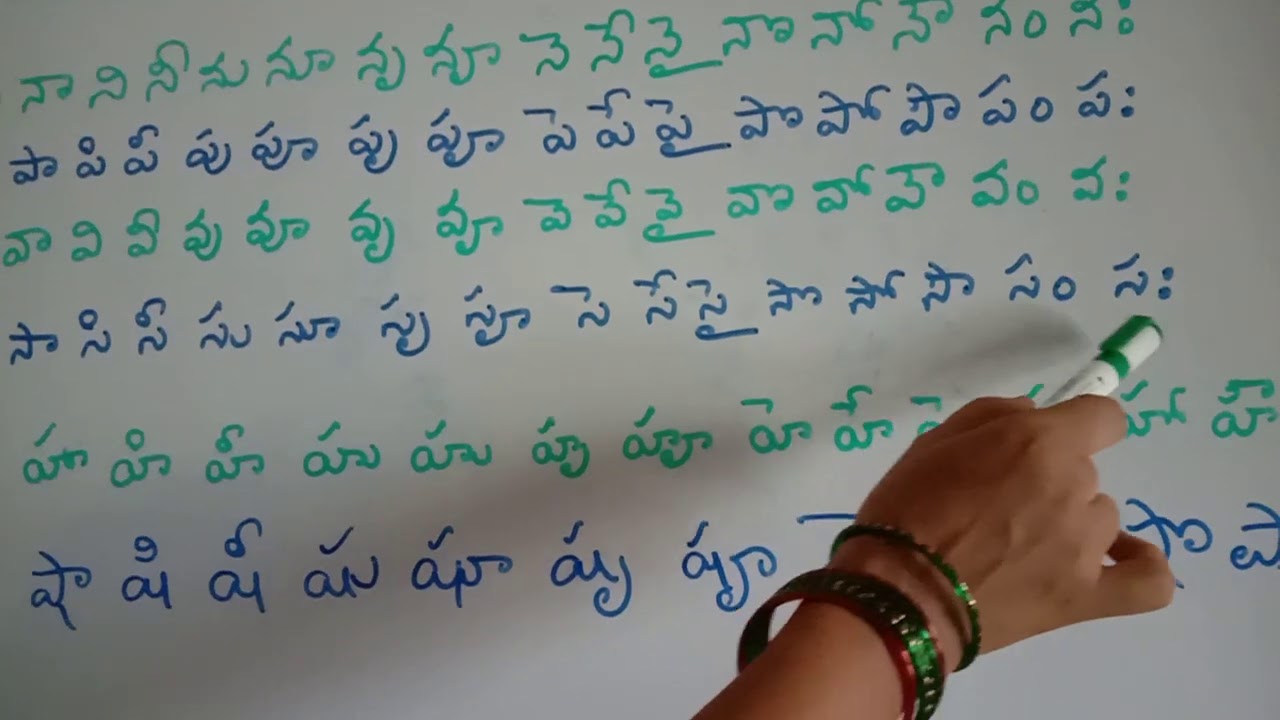 నా ని నీ ను నూ నృ నౄ నె నే నై నొ నో నౌ నం నః
పా పి పీ పు పూ పృ పౄ పె పే పై పొ పో పౌ పం పః
వా వి వీ వు వూ వృ వౄ వె వే వై వొ వో వౌ వం వః
సా సి సీ సు సూ సృ సౄ సె సే సై సొ సో సౌ సం సః
హా హి హీ హు హు హృ హౄ హె హే హో హౌ
షా షి షీ షు షూ షృ షౄ షొ